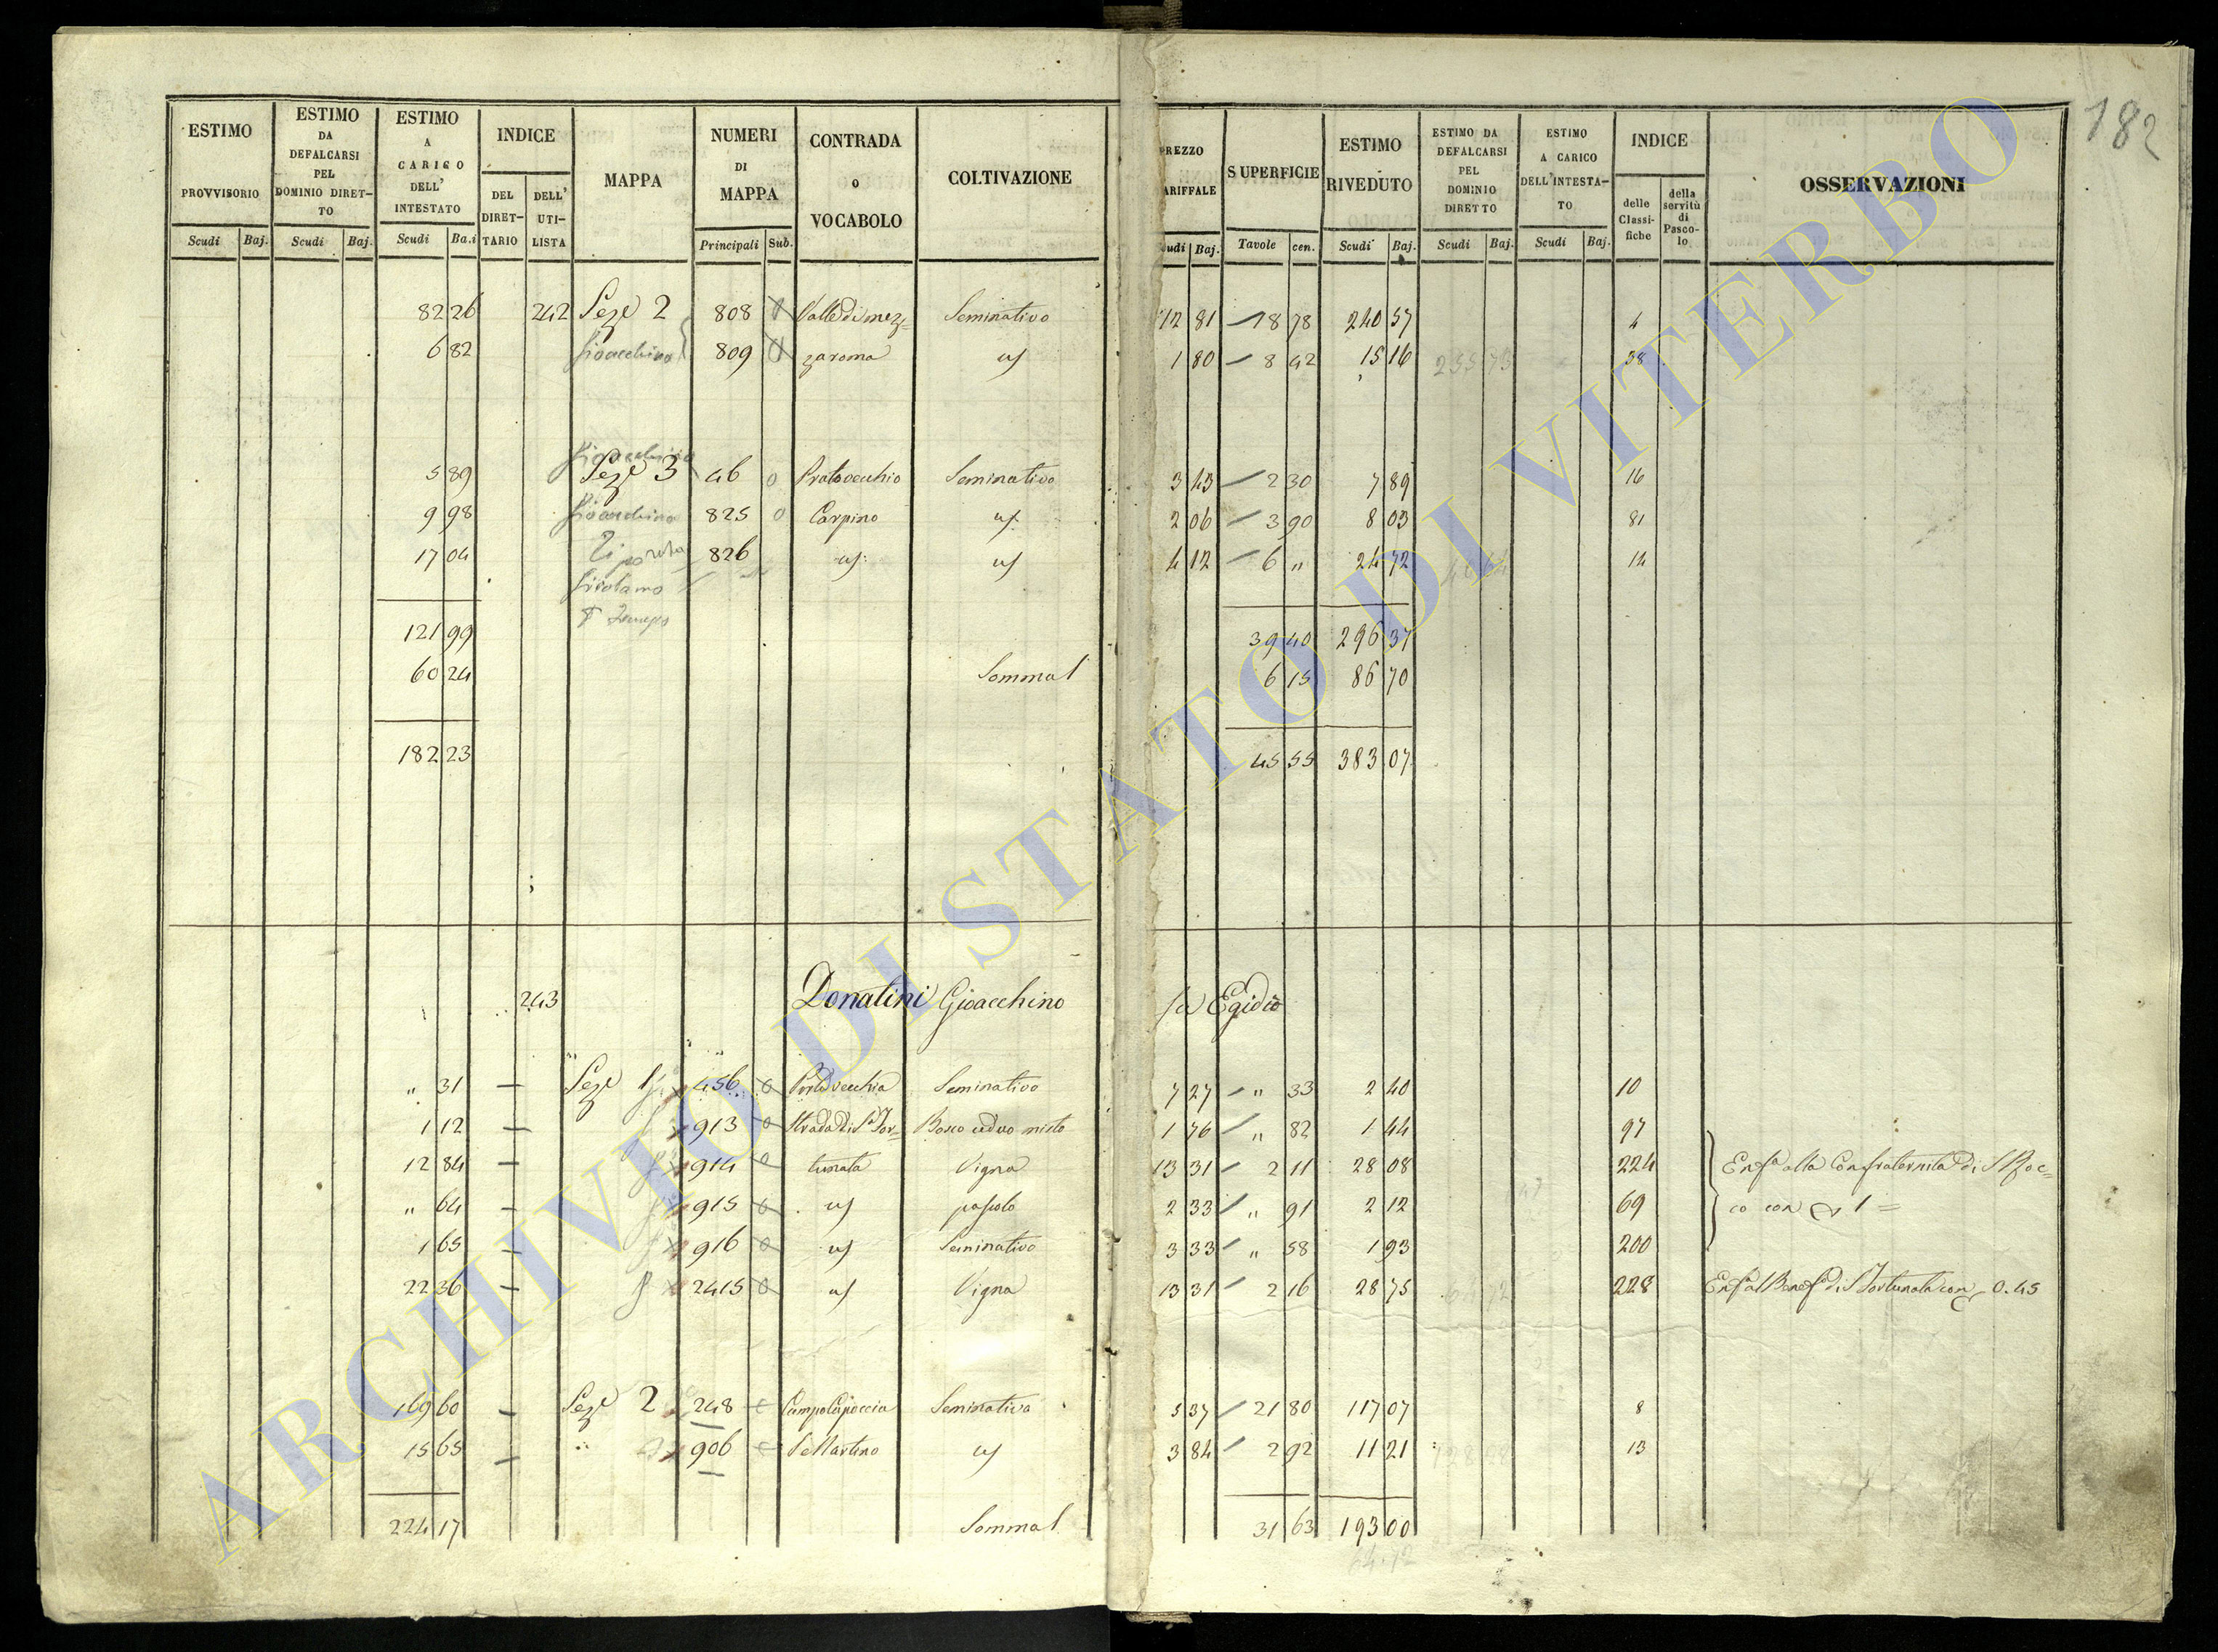 182
ESTIMO PROVVISORIO Scudi Baj.
ESTIMO DA DEFALCARSI PEL DOMINIO DIRETTO Scudi Baj.
ESTIMO A CARICO DELL' INTESTATO Scudi Ba.i
INDICE DEL DIRETTARIO DELL' UTILISTA
MAPPA
NUMERI DI MAPPA Principali Sub.
CONTRADA o VOCABOLO
COLTIVAZIONE
REZZO ARIFFALE udi Baj.
SUPERFICIE Tavole cen.
ESTIMO RIVEDUTO Scudi Baj.
ESTIMO DA DEFALCARSI PEL DOMINIO DIRETTO Scudi Baj.
ESTIMO A CARICO DELL'INTESTATO Scudi Baj.
INDICE delle Classifiche della servitù di Pascolo
OSSERVAZIONI
82 26 242 Sez.e 2 808 Valle di mez= Seminativo 12 81 18 78 240 57 4
6 82 Gioacchino 809 zaroma 1 80 8 42 15 16 255 73 38
Gioacchino
5 89 Sez.e 3 46 0 Pratovecchio Seminativo 3 43 2 30 7 89 16
9 98 Gioacchino 825 0 Carpino 2 06 3 90 8 03 81
17 04 826 4 12 6 " 24 72 14
Girolamo
121 99 39 40 296 37
60 24 Somma 6 15 86 70
182 23 45 55 383 07
243 Donatini Gioacchino fù Egidio
" 31 — Sez.e 1 456 0 Portavecchia Seminativo 7 27 " 33 2 40 10
1 12 — 913 0 Strada di S.a For= Bosco ceduo misto 1 76 " 82 1 44 97
12 84 — 914 0 tunata Vigna 13 31 2 11 28 08 224 Enf.a alla Confraternita di S. Roc=
" 64 — 915 0 pascolo 2 33 " 91 2 12 69 co con 1 =
1 65 — 916 0 Seminativo 3 33 " 58 1 93 200
22 36 — 2415 0 Vigna 13 31 2 16 28 75 228 Enf.a al Benef.o di S. Fortunata con 0.45
169 60 — Sez.e 2 248 Campo Capoccia Seminativo 5 37 21 80 117 07 8
15 65 — " 906 S. Martino 3 84 2 92 11 21 13
224 17 Somma 31 63 193 00
64.72
ARCHIVIO DI STATO DI VITERBO